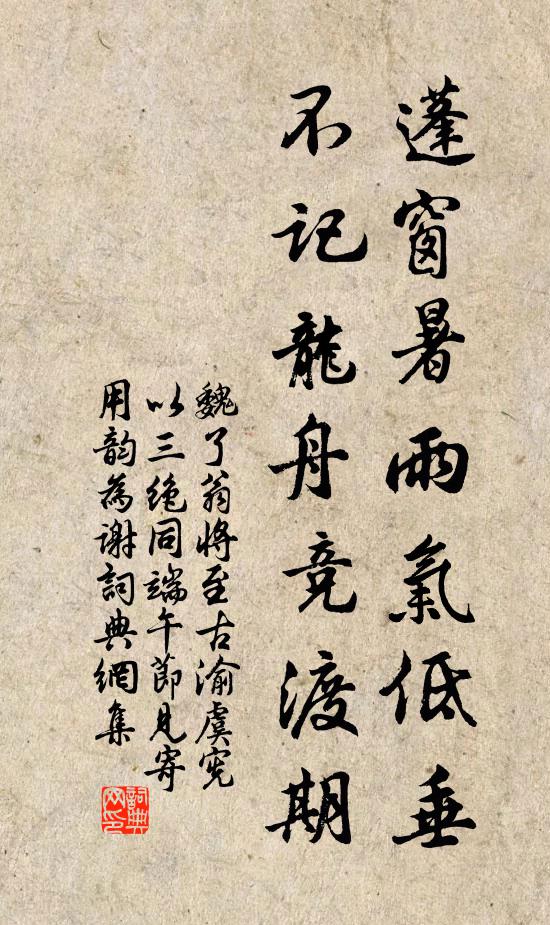 蓬窗暑雨氣低垂
不记龍舟竞渡期
魏了翁將至古渝虞宪
以三绝同端午節見寄
用韵為谢詞典網集
詞典网印